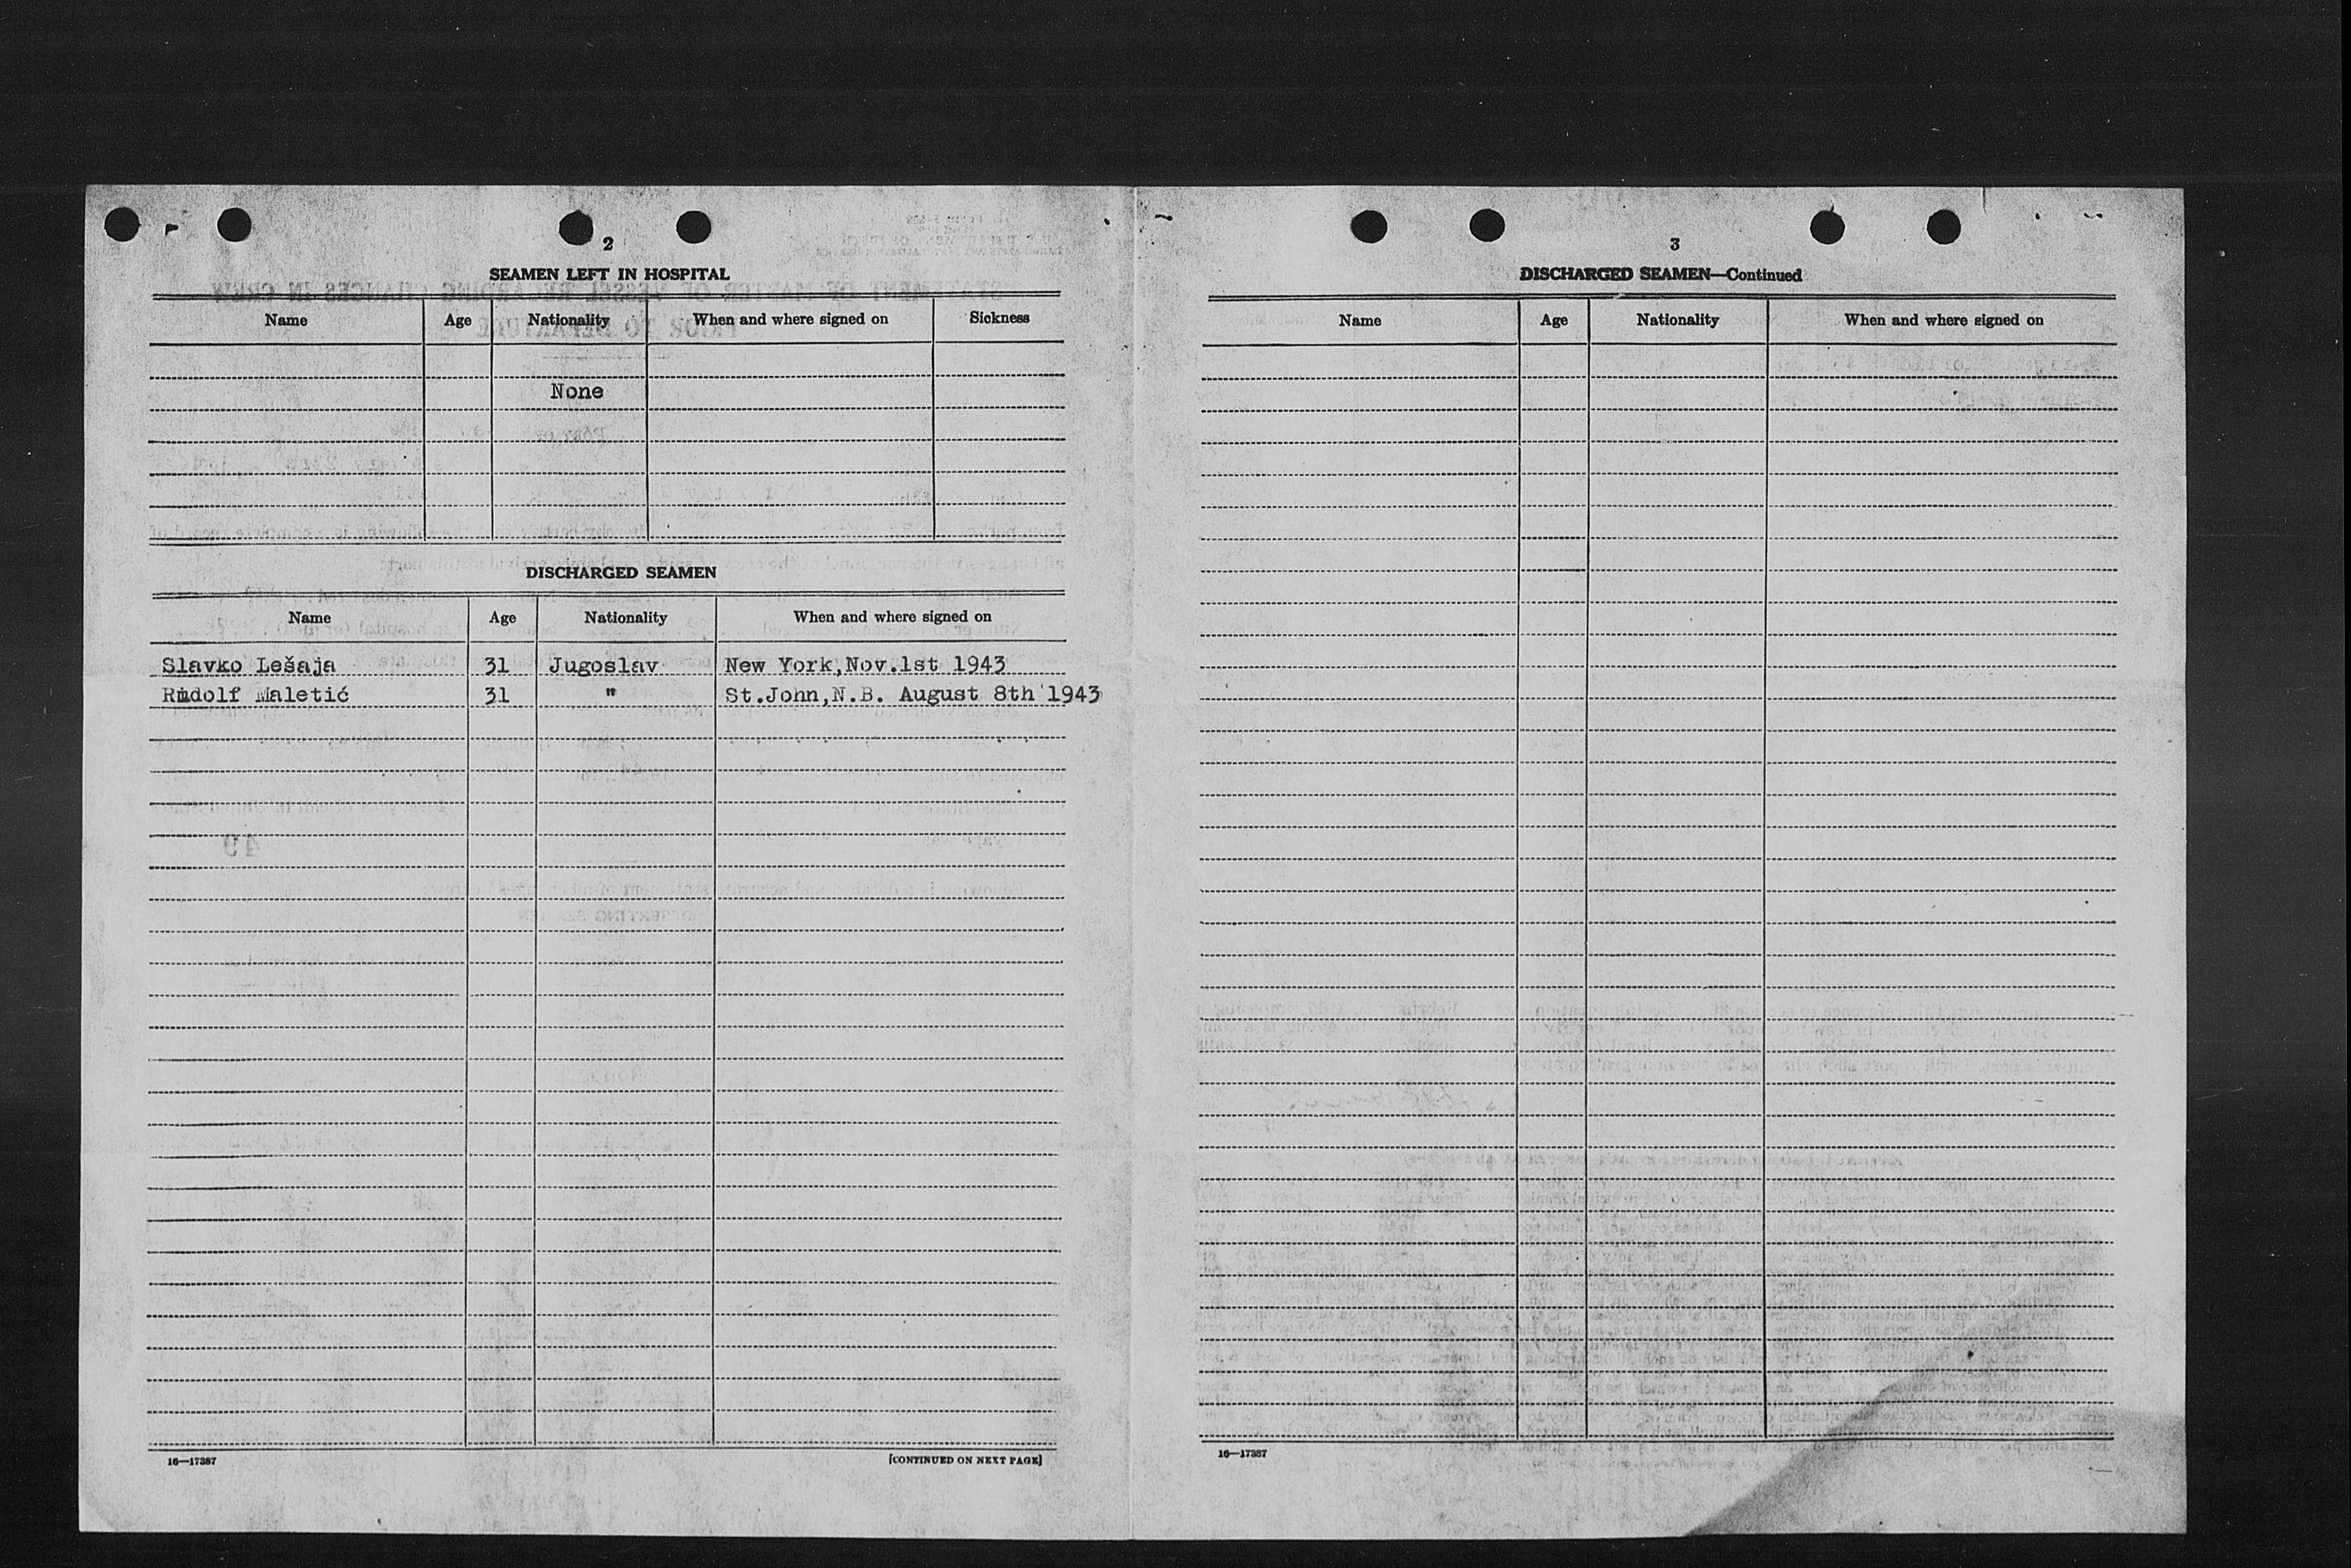 2
SEAMEN LEFT IN HOSPITAL
Name Age Nationality When and where signed on Sickness
None
DISCHARGED SEAMEN
Name Age Nationality When and where signed on
Slavko Lešaja 31 Jugoslav New York,Nov.1st 1943
Rudolf Maletić 31 " St.John,N.B. August 8th 1943
16—17387 [CONTINUED ON NEXT PAGE]
3
DISCHARGED SEAMEN—Continued
Name Age Nationality When and where signed on
16—17387